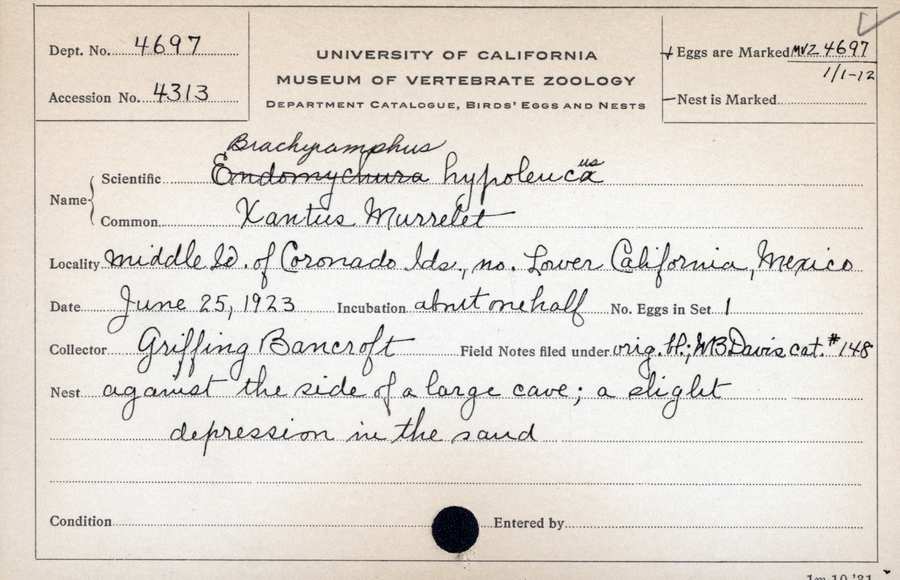 Dept. No. 4697
Accession No. 4313
UNIVERSITY OF CALIFORNIA
MUSEUM OF VERTEBRATE ZOOLOGY
DEPARTMENT CATALOGUE, BIRDS' EGGS AND NESTS
+ Eggs are Marked MVZ 4697
1/1-12
— Nest is Marked
Brachyramphus
Name { Scientific Endomychura hypoleuca us
Common Xantus Murrelet
Locality Middle Id. of Coronado Ids., no. Lower California, Mexico
Date June 25, 1923 Incubation about one half No. Eggs in Set 1
Collector Griffing Bancroft Field Notes filed under orig. bl.; WB Davis cat. #148
Nest against the side of a large cave; a slight
depression in the sand
Condition Entered by
1m 10 '31